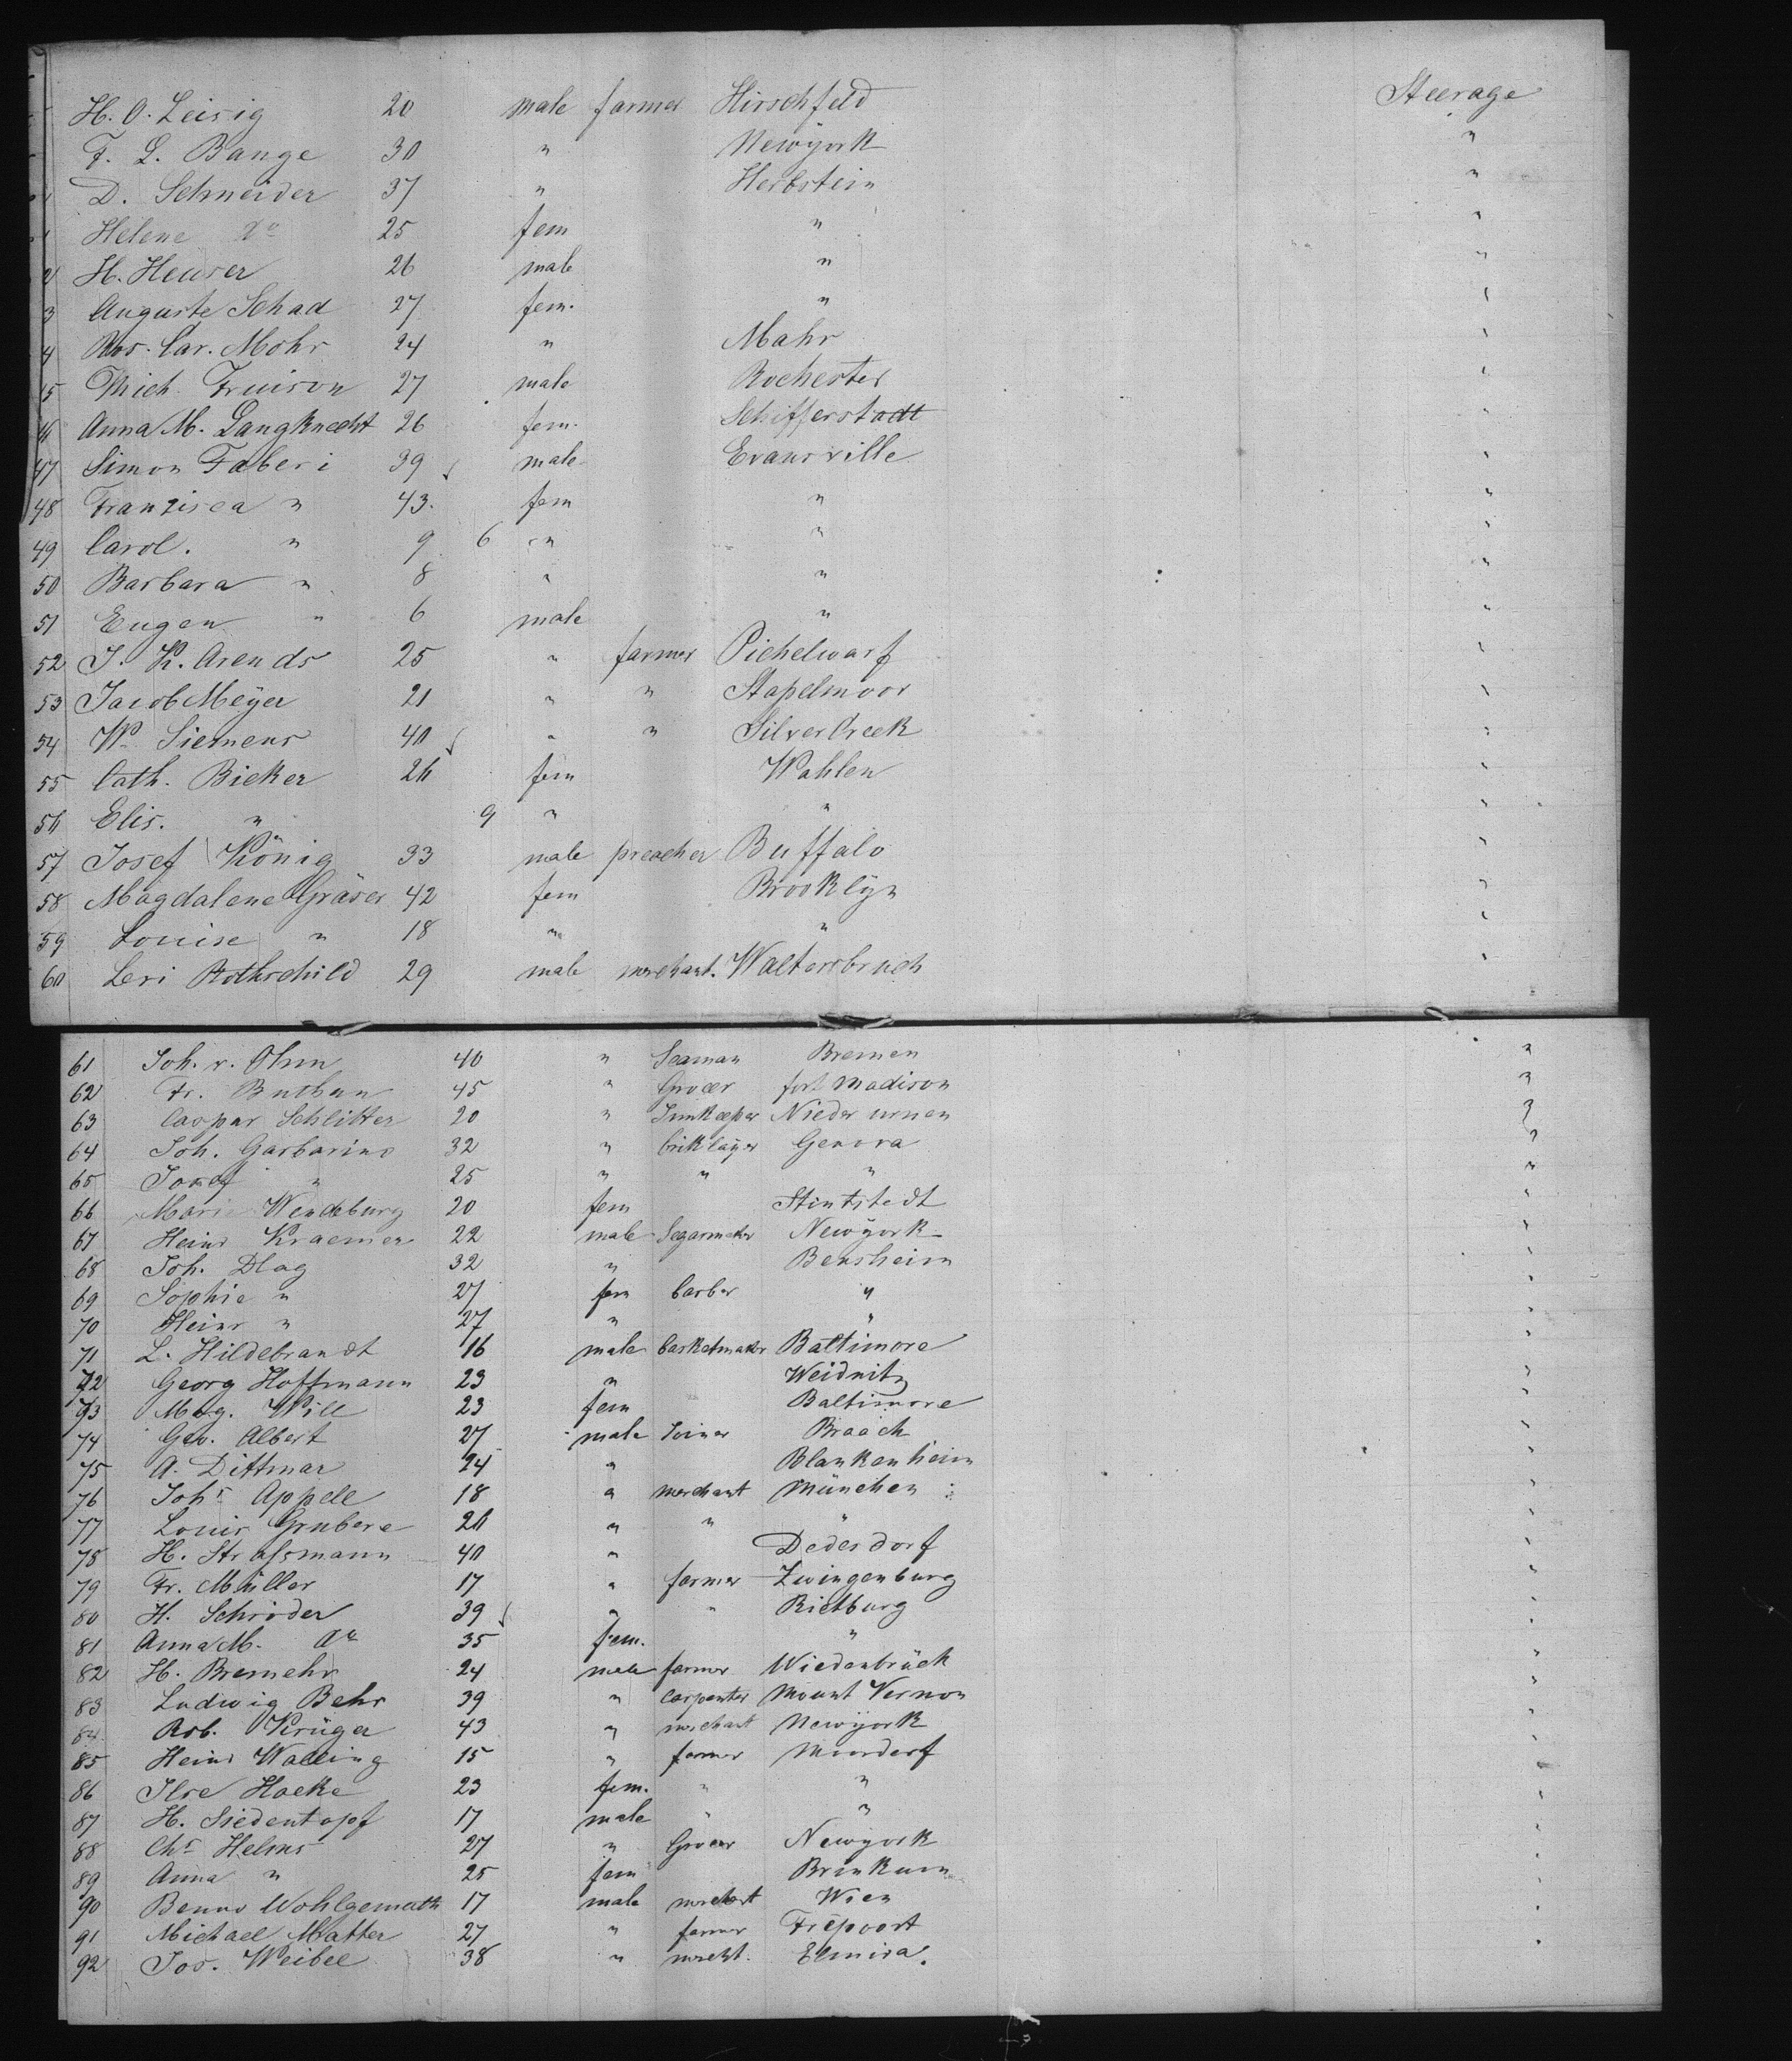 H. O. Leisig 20 male farmer Hirschfeld Steerage
F. L. Bange 30 " Newÿork "
D. Schneider 37 " Herbstein "
Helene do 25 fem " "
H. Heuser 26 male " "
3 Auguste Schad 27 fem. " "
4 Ros. Car. Mohr 24 " Mahr "
5 Mich. Fruison 27 male Rochester "
46 Anna M. Langknecht 26 fem. Schifferstadt "
47 Simon Faberi 39 male Evansville "
48 Franzisca " 43. fem " "
49 Carol. " 9 6 " " "
50 Barbara " 8 " " "
51 Eugen " 6 male " "
52 J. K. Arends 25 " farmer Pichelwarf "
53 Jacob Meÿer 21 " " Stapelmoor "
54 Wm Siemens 40 " " Silver Creek "
55 Cath. Bieker 26 fem Wahlen "
56 Elis. " 9 " " "
57 Josef König 33 male preacher Buffalo "
58 Magdalene Gräser 42 fem Brooklÿn "
59 Louise " 18 " " "
60 Levi Rothschild 29 male merchant. Waltersbruch "
61 Joh. v. Ohm 40 " Seaman Bremen "
62 Fr. Buthun 45 " Grocer fort Madison "
63 Caspar Schlitter 20 " Innkeeper Nieder urnen "
64 Joh. Garbarino 32 " briklaÿer Genova "
65 Josef " 25 " " " "
66 Marie Wendeburg 20 fem Stintstedt "
67 Heinr Kraemer 22 male Segarmaker Newÿork "
68 Joh. Dlag 32 " Bensheim "
69 Sophie " 27 fem barber " "
70 Heinr " 27 " " "
71 L. Hildebrandt 16 male basketmaker Baltimore "
72 Georg Hoffmann 23 " Weidnitz "
73 Mag. Will 23 fem Baltimore "
74 Geo. Albert 27 male Joiner Braach "
75 A. Dittmar 24 " Blankenheim "
76 Johs Appell 18 " merchant München "
77 Louis Grubere 26 " " " "
78 H. Strassmann 40 " Dedesdorf "
79 Fr. Müller 17 " farmer Zwingenburg "
80 H. Schröder 39 " " Rietburg "
81 Anna M. do 35 fem. " "
82 H. Bremehr 24 male farmer Wiedenbrück "
83 Ludwig Behr 39 " Carpenter Mount Vernon "
84 Rob. Krüger 43 " merchant Newÿork "
85 Heinr Walling 15 " farmer Moordorf "
86 Ilse Hacke 23 fem. " " "
87 H. Siedentopf 17 male " " "
88 Chr Helms 27 " Grocer Newÿork "
89 Anna " 25 fem Brinkum "
90 Benno Wohlgemuth 17 male merchant Wien "
91 Michael Matter 27 " farmer Freeport "
92 Jos. Weibel 38 " mercht. Elmira. "